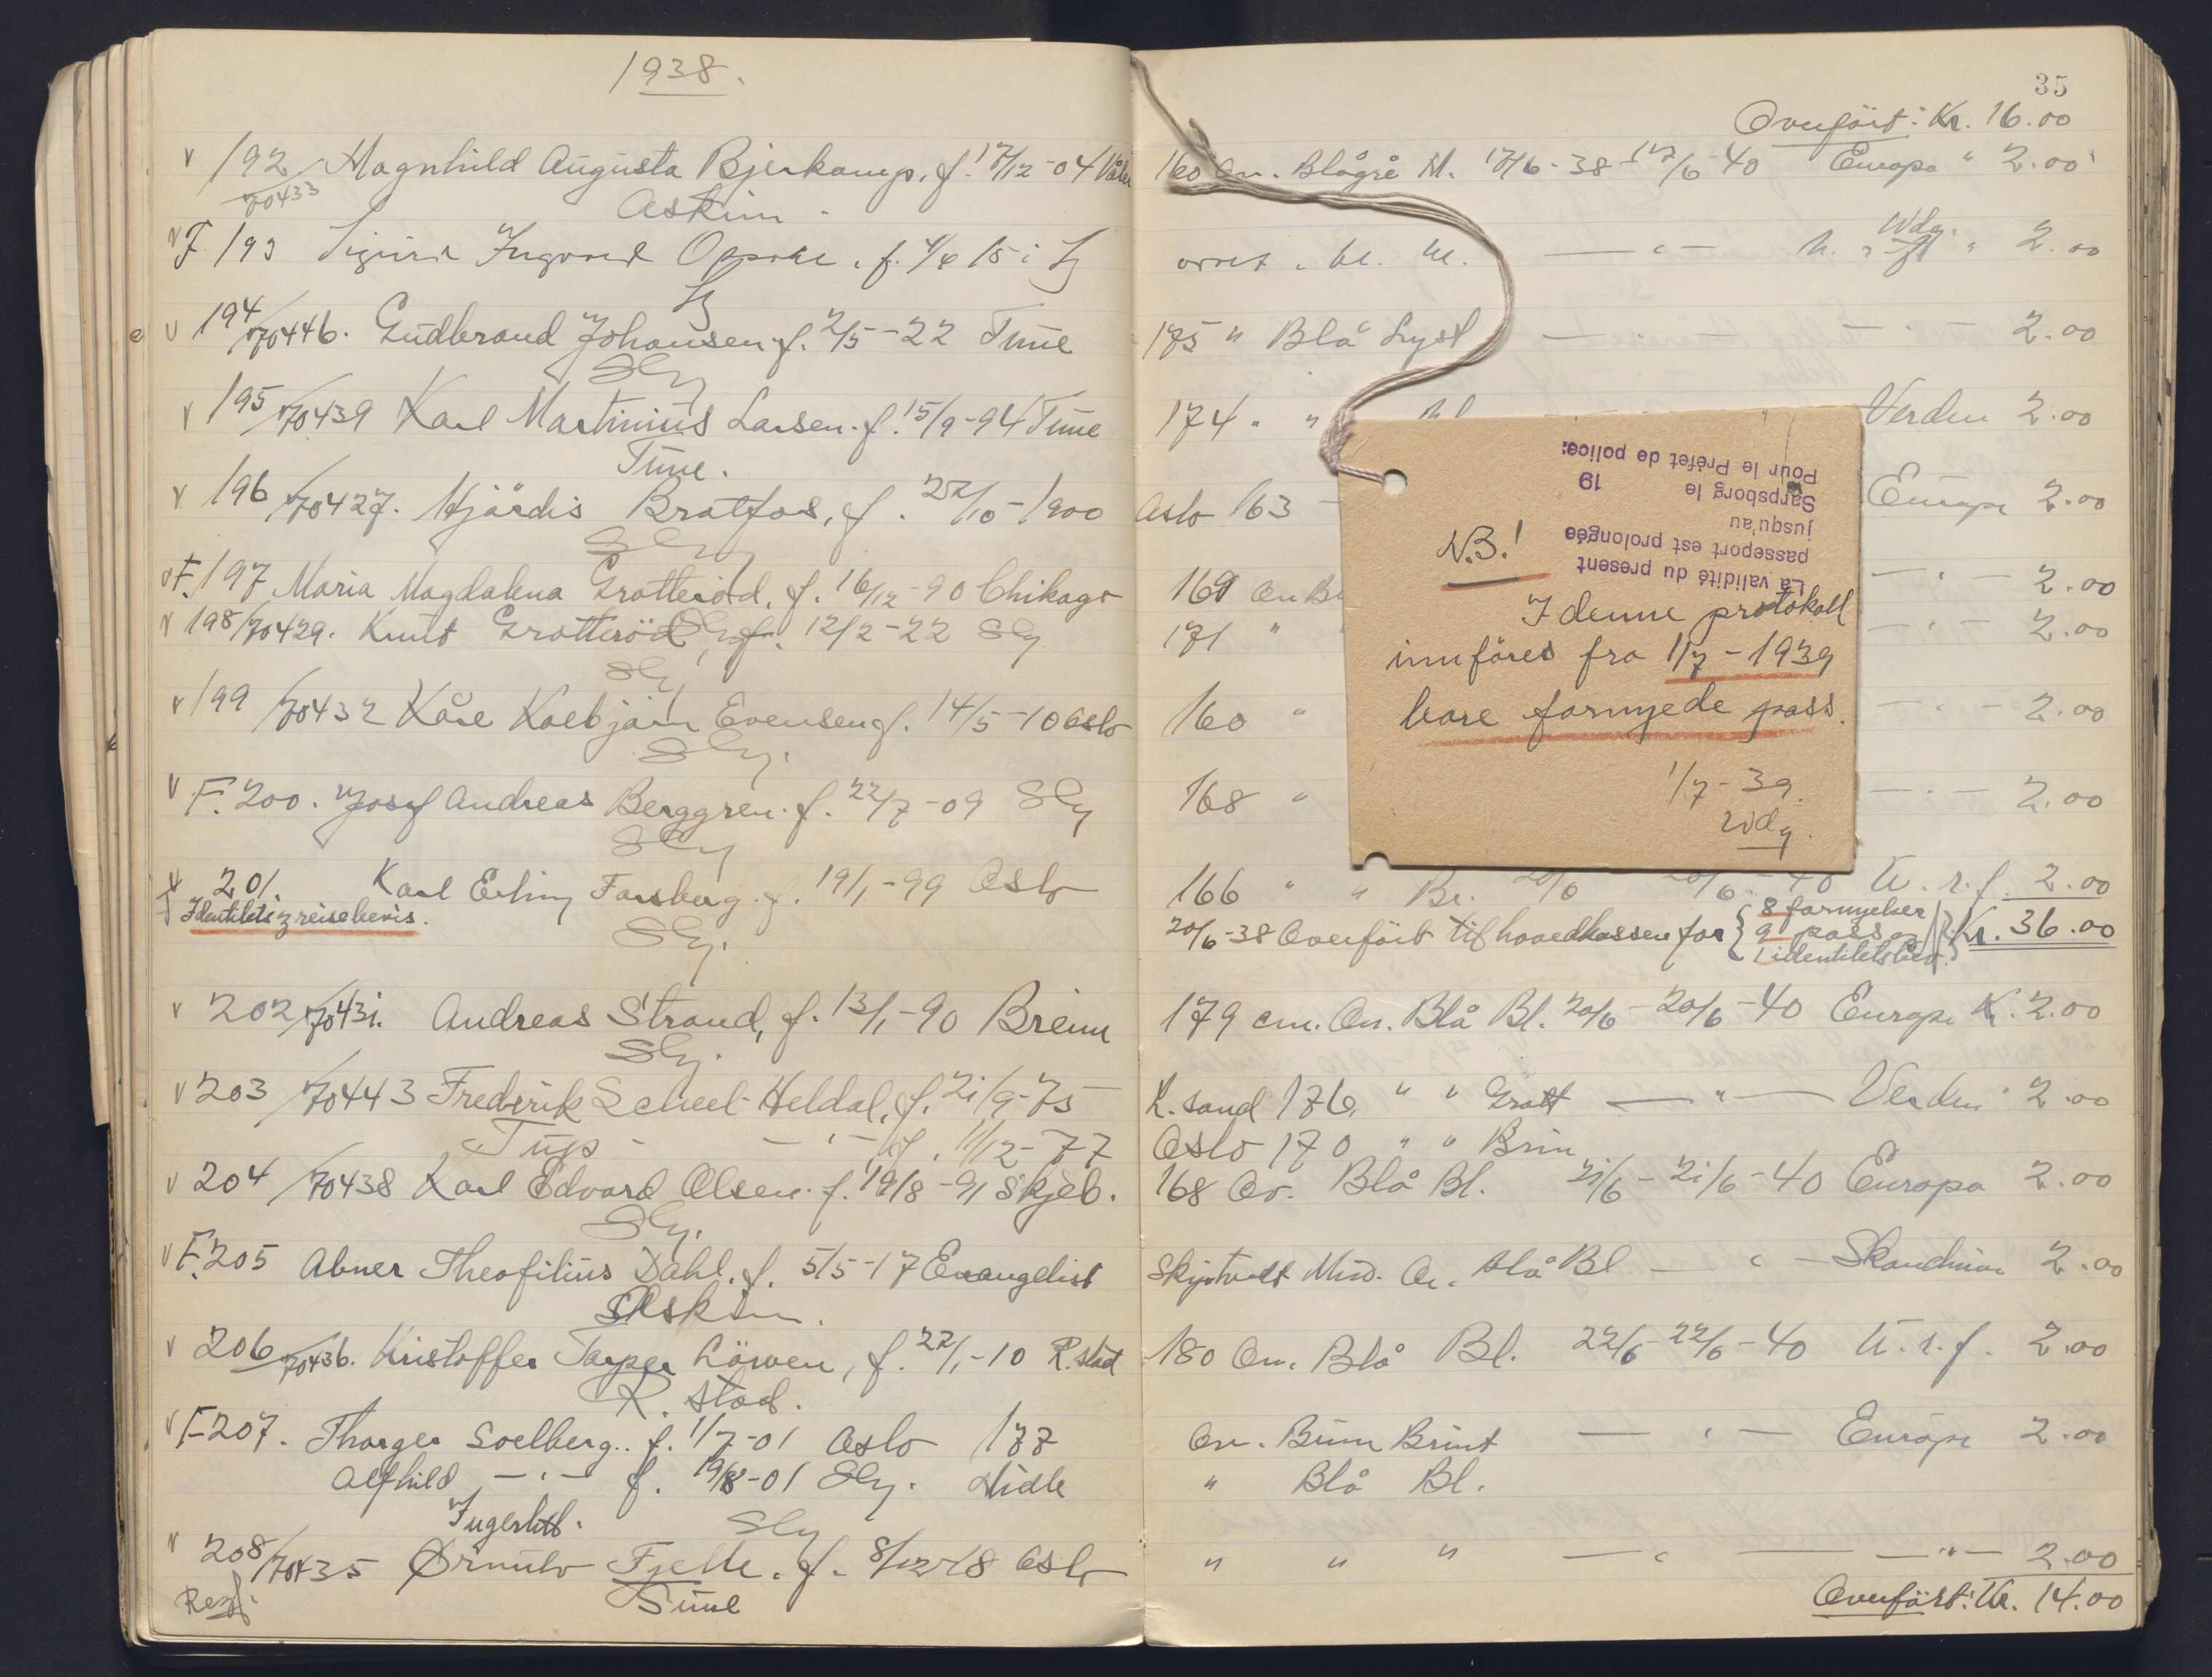 1938.
192 Magnhild Augusta Bjerkamp, f. 17/12-04 Våler
70433 Askim.
F. 193 Sigurd Ingvard f. 4/6 15 i
194/70446. Gudbrand Johansen f. 2/5-22 Tune
Slg
195/70439 Karl Martinius Larsen. f. 15/9-94 Tune
Tune.
196/70427. Hjördis Bratfos, f. 22/10-1900
Slg
F. 197 Maria Magdalena Grotteröd, f. 16/12-90 Chikago
198/70429. Knut Grotteröd, f. 12/2-22 Slg
Slg
199/70432 Kåre Evensen f. 14/5-10 Oslo
Slg.
F. 200. Josef Andreas Berggren. f. 22/7-09 Slg
Slg
201. Karl Erling Forsberg. f. 19/1-99 Oslo
Identitets reisebevis.
Slg.
202/70431. Andreas Strand, f. 13/1-90 Breim
Slg.
203/70443 Frederik Scheel Heldal, f. 21/9-75
Tups — " — f. 11/12-77
204/70438 Karl Edvard Olsen. f. 19/8-91 Skjeb.
Slg.
F. 205 Abner Theofilius Dahl. f. 5/5-17 Evangelist
Askim.
206/70436. Kristoffer Löwen, f. 22/1-10 R.stad
R. stad.
F 207. Thorger Soelberg.. f. 1/7-01 Oslo 177
Alfhild — " — f. 19/8-01 Slg. Midle
Slg
208/70435 Ørnulv Fjelle. f. 8/12-18 Oslo
Tune
35
Overfört: Kr. 16.00
160 Ov. Blågrå M. 17/6-38-17/6-40 Europa " 2.00
Wdg.
2.00
175 " Blå Lyst — " — — " — 2.00
174 " " Verden 2.00
Oslo 163 Europa 2.00
169 Ov — " — 2.00
171 " — " — 2.00
160 " — " — 2.00
168 " — " — 2.00
166 " " Br. 20/6 20/6-40 U.r.f. 2.00
20/6-38 Overfört til hovedkassen for { 8 fornyelser
9 pass
1 identitetsbev. } Kr. 36.00
179 cm. Ov. Blå Bl. 20/6-20/6-40 Europa Kr. 2.00
K. sand 176. " " Grått — " — Verden 2.00
Oslo 170 " " Brun
168 Ov. Blå Bl. 21/6-21/6-40 Europa 2.00
Ov. Blå Bl — " — 2.00
180 Ov. Blå Bl. 22/6-22/6-40 U.r.f. 2.00
Ov. Brun Brunt — " — Europa 2.00
" Blå Bl.
" " " — " — — " — 2.00
Overfört: Kr. 14.00
N.B.!
I denne protokoll
innföres fra 1/7-1939
bare fornyede pass.
1/7-39.
Wdg.
La validité du present
passeport est prolongée
jusqu'au
Sarpsborg le 19
Pour le Préfet de police: